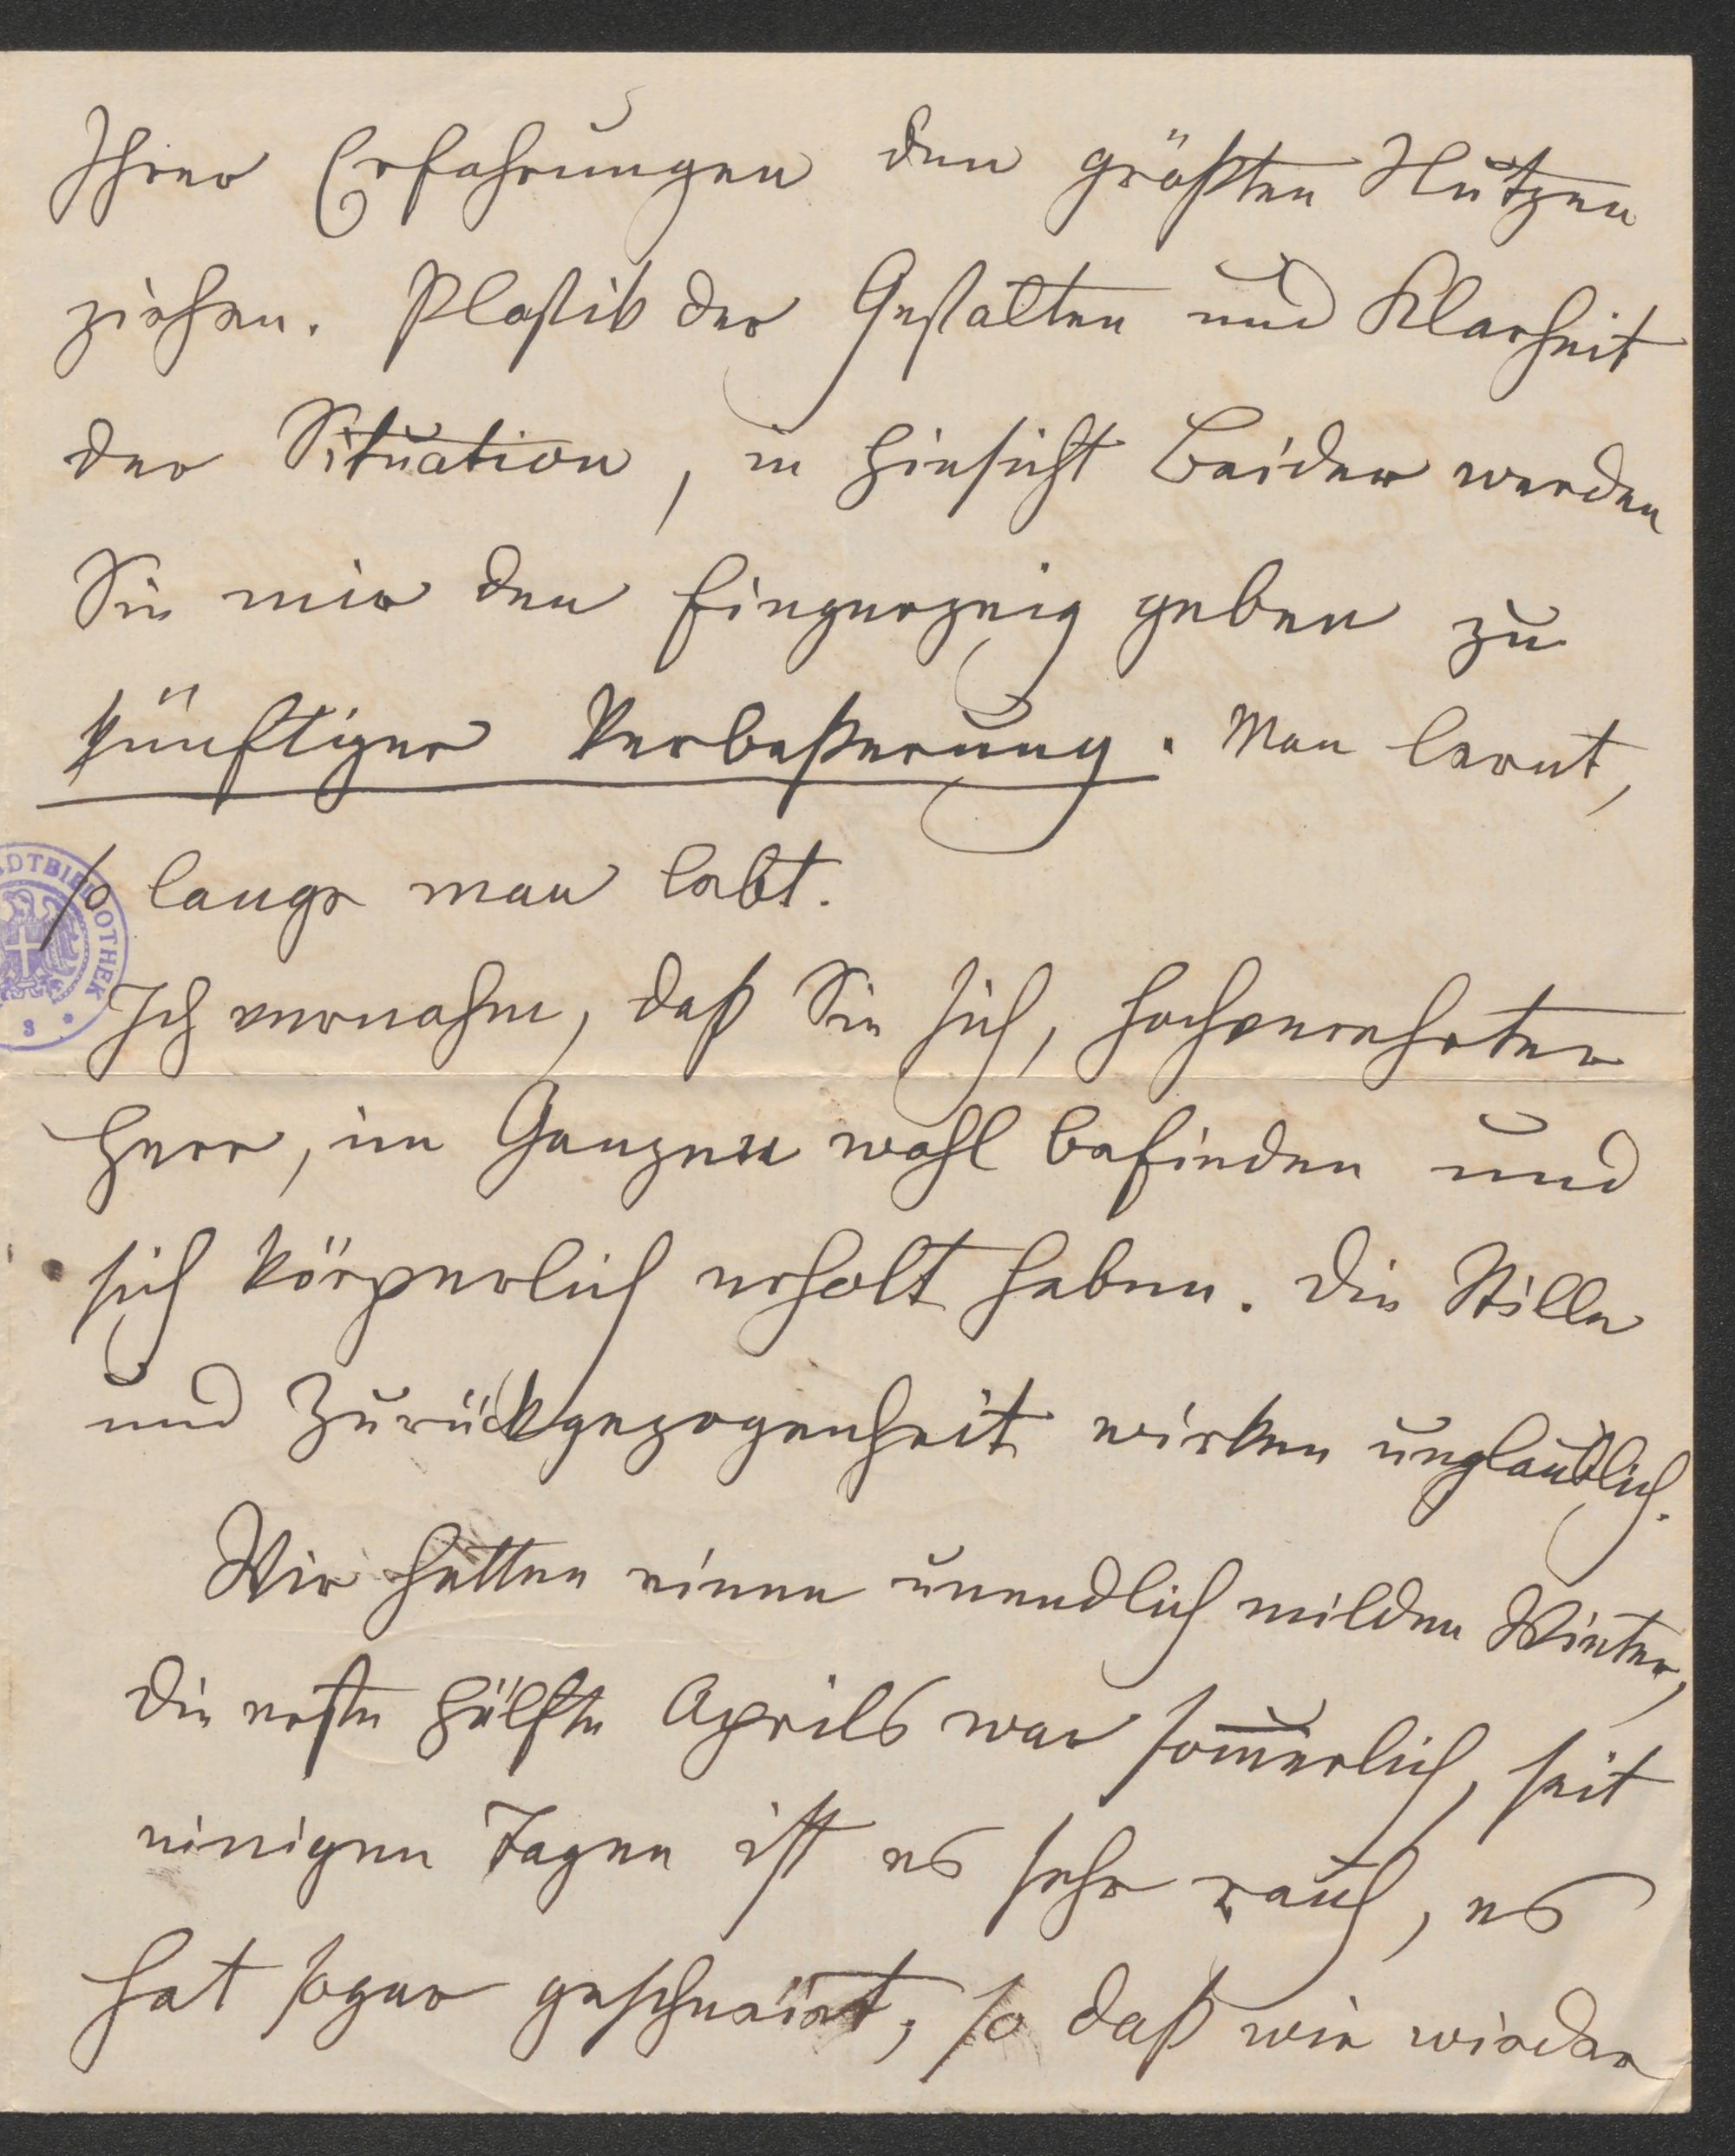 Ihrer Erfahrungen den größten Nutzen
ziehen. Plastik der Gestalten und Klarheit
der Situation, in Hinsicht Beider werden
Sie mir den Fingerzeig geben zu
künftiger Verbeßerung. Man lernt,
so lange man lebt.
Ich vernahm, daß Sie sich, hochverehrter
Herr, im Ganzen wohl befinden und
sich körperlich erholt haben. Die Stille
und Zurückgezogenheit wirken unglaublich.
Wir hatten einen unendlich milden Winter,
die erste Hälfte Aprils war som̅erlich, seit
einigen Tagen ist es sehr rauh, es
hat sogar geschneit, so daß wir wieder
DTBIBLIOTHEK
3